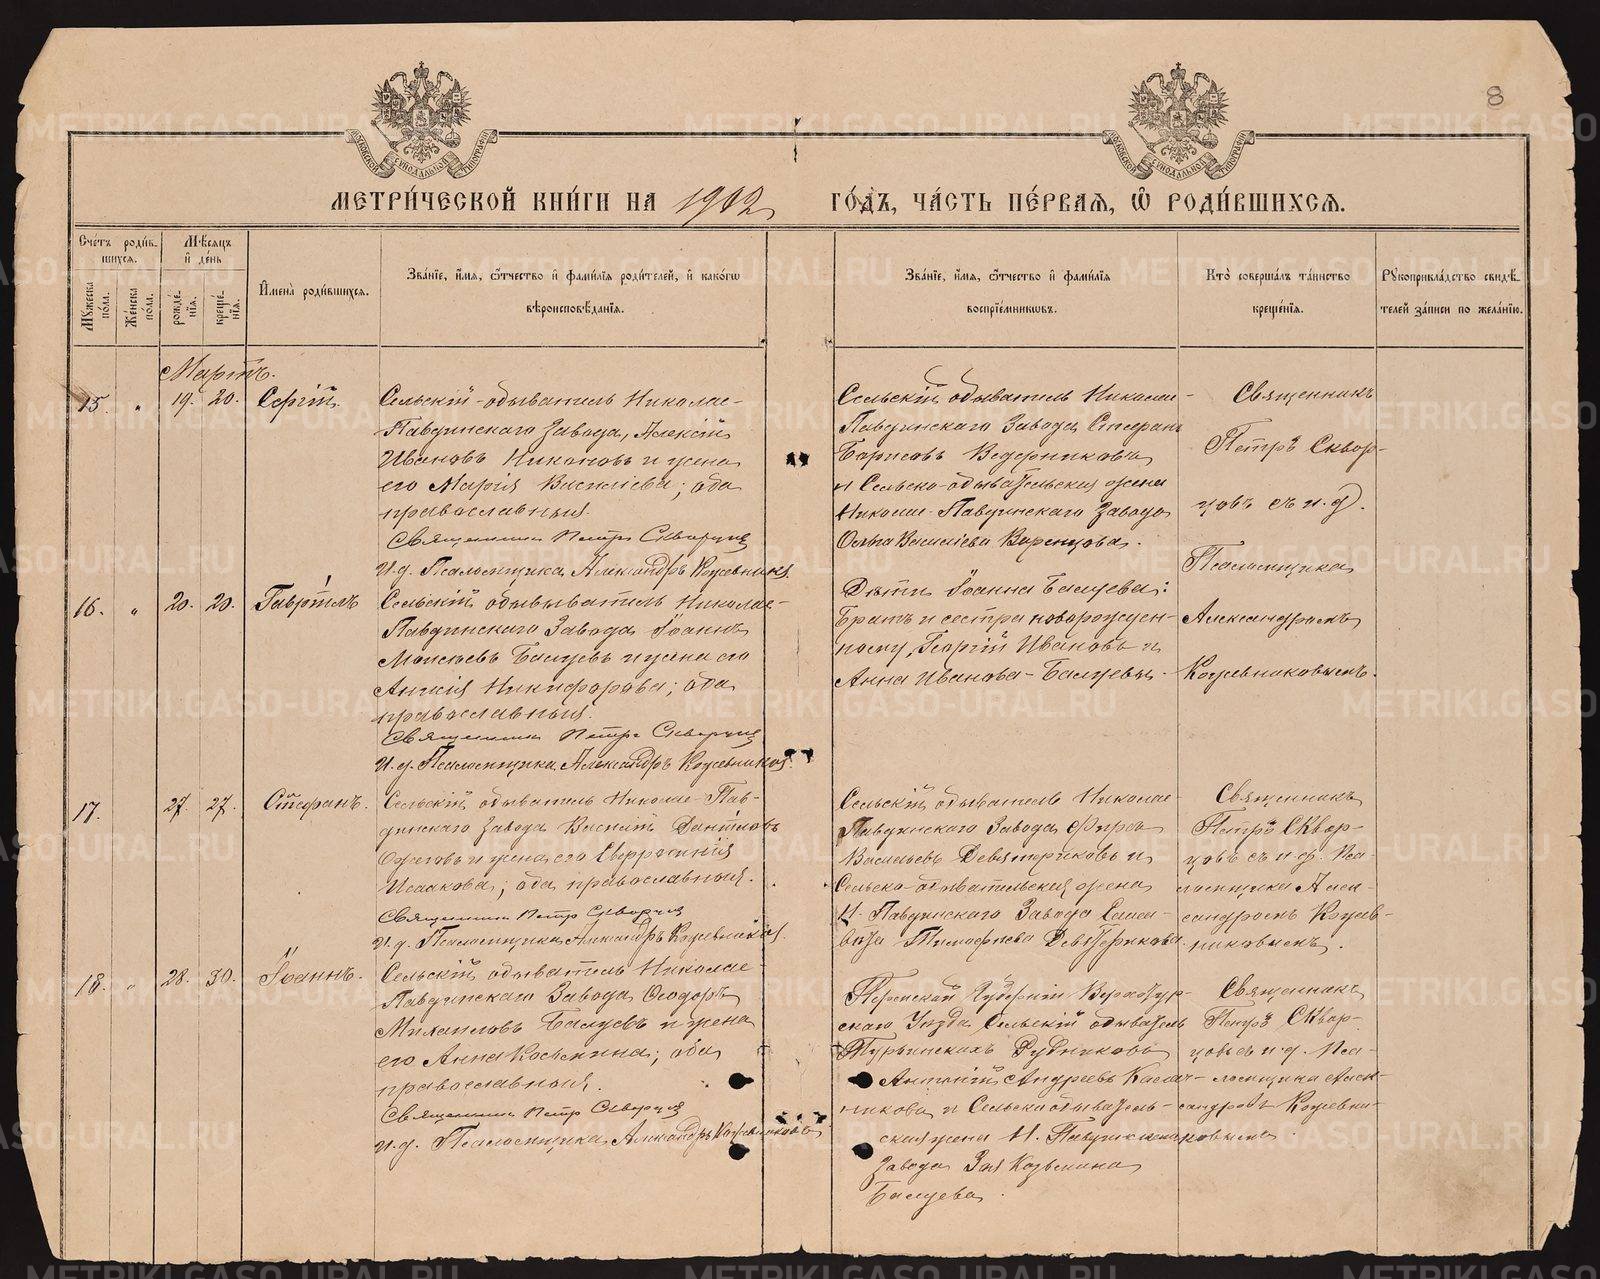 8
МЕТРИ́ЧЕСКОЙ КНИ́ГИ НА 1902 ГО́ДЪ, ЧА́СТЬ ПЕ́РВАЯ, Ѡ РОДИ́ВШИХСЯ.
Сче́тъ роди́вшихся.
Мꙋ́жеска по́ла.
Же́нска по́ла.
Мѣ́сяцъ и҆ де́нь
рожде́нїя.
креще́нїя.
И҆мена̀ роди́вшихся.
Зва́нїе, и҆́мя, ѻ҆́тчество и҆ фами́лїя роди́телей, и҆ како́гѡ вѣроисповѣ́данїя.
Зва́нїе, и҆́мя, ѻ҆́тчество и҆ фами́лїя воспрїе́мникѡвъ.
Кто̀ соверша́лъ та́инство креще́нїя.
Рꙋкоприкла́дство свидѣ́телей за́писи по жела́нїю.
Мартъ.
15. " 19. 20. Сергій.
Сельскій-обыватель Николае-
Павдинскаго Завода, Алексій
Ивановъ Никоновъ и жена
его Марія Василіева; оба
православныя.
Священникъ Петръ Скворцовъ
И.д. Псаломщика Александръ Кожевниковъ.
Сельскій обыватель Николае-
Павдинскаго Завода Стефанъ
Борисовъ Ведерниковъ
и Сельско-обывательская жена
Николае-Павдинскаго Завода
Ольга Василіева Воренцова.
Священникъ
Петръ Сквор-
цовъ съ и.д.
Псаломщика
Александромъ
Кожевниковымъ.
16. " 20. 20. Гавріилъ
Сельскій обывыватель Николае-
Павдинскаго Завода Іоаннъ
Моисеевъ Балуевъ и жена его
Анисія Никифорова; оба
православныя.
Священникъ Петръ Скворцовъ
И.д. Псаломщика Александръ Кожевниковъ.
Дѣти Іоанна Балуева:
Братъ и сестра новорожден-
ному, Георгій Ивановъ и
Анна Иванова-Балуевы.
17. 27. 27. Стефанъ.
Сельскій обыватель Николае-Пав-
динскаго Завода Василій Даніиловъ
Ожеговъ и жена его Евфросинія
Исаакова; оба православныя.
Священникъ Петръ Скворцовъ
И.д. Псаломщика Александръ Кожевниковъ.
Сельскій обыватель Николае-
Павдинскаго Завода Фирсъ
Васильевъ Девятериковъ и
Сельско-обывательская жена
Н-Павдинскаго Завода Елиса-
вета Тимофеева Девятерикова.
Священникъ
Петръ Сквор-
цовъ съ и.д. Пса-
ломщика Алек-
сандромъ Кожев-
никовымъ.
18. " 28. 30. Іоаннъ.
Сельскій обыватель Николае-
Павдинскаго Завода Ѳеодоръ
Михаиловъ Балуевъ и жена
его Анна Косьмина; оба
православныя.
Священникъ Петръ Скворцовъ
И.д. Псаломщика Александръ Кожевниковъ
Пермской Губерніи Верхотур-
скаго Уѣзда Сельскій обыватель
Турьинскихъ Рудниковъ
Антоній Андреевъ
и Сельско обыватель-
ская жена Н. Павдинскаго
Завода Зоя Козьмина
Балуева.
Священникъ
Петръ Сквор-
цовъ съ и.д. Пса-
ломщика Алек-
сандромъ Кожевни-
ковымъ.
METRIKI.GASO-URAL.RU